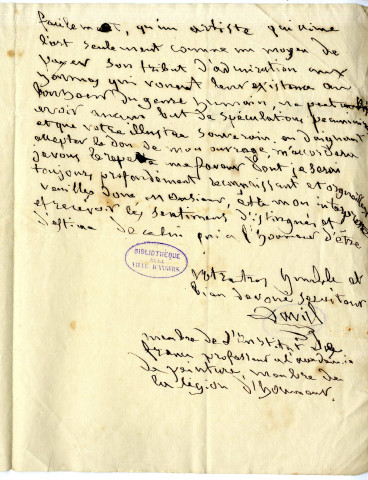 facilement, qu'un artiste qui aime
l'art seulement comme un moyen de
payer son tribut d'admiration aux
hommes qui vouent leur existance au
bonheur du genre humain, ne peut
avoir aucun but de spéculations pecuniaires
et que votre illustre souverain, en daignant
accepter le don de mon ouvrage, m'accordera
je vous le repette une faveur dont je serai
toujours profondément reconnaissant et orgueilleux
veuillez donc, Monsieur, être mon interprète
et recevoir les sentiments distingués et
d'estime de celui qui a l'honneur d'être
BIBLIOTHÈQUE
DE LA
VILLE D'ANGERS
votre tres humble et
bien devoué serviteur
David
membre de l'Institut de
france professeur a l'academie
de peinture, membre de
la légion d'honneur.